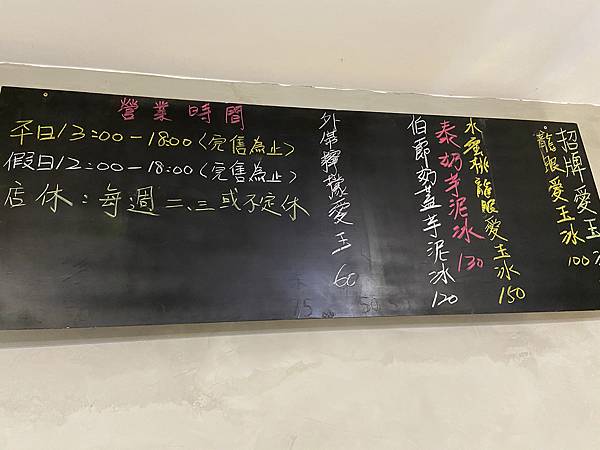 營業時間
平日13:00-18:00(完售為止)
假日12:00-18:00(完售為止)
店休:每週二、三或不定休
招牌愛玉
龍眼愛玉冰100
水蜜桃龍眼愛玉冰150
泰奶芋泥冰130
伯爵奶蓋芋泥冰120
外帶檸檬愛玉60